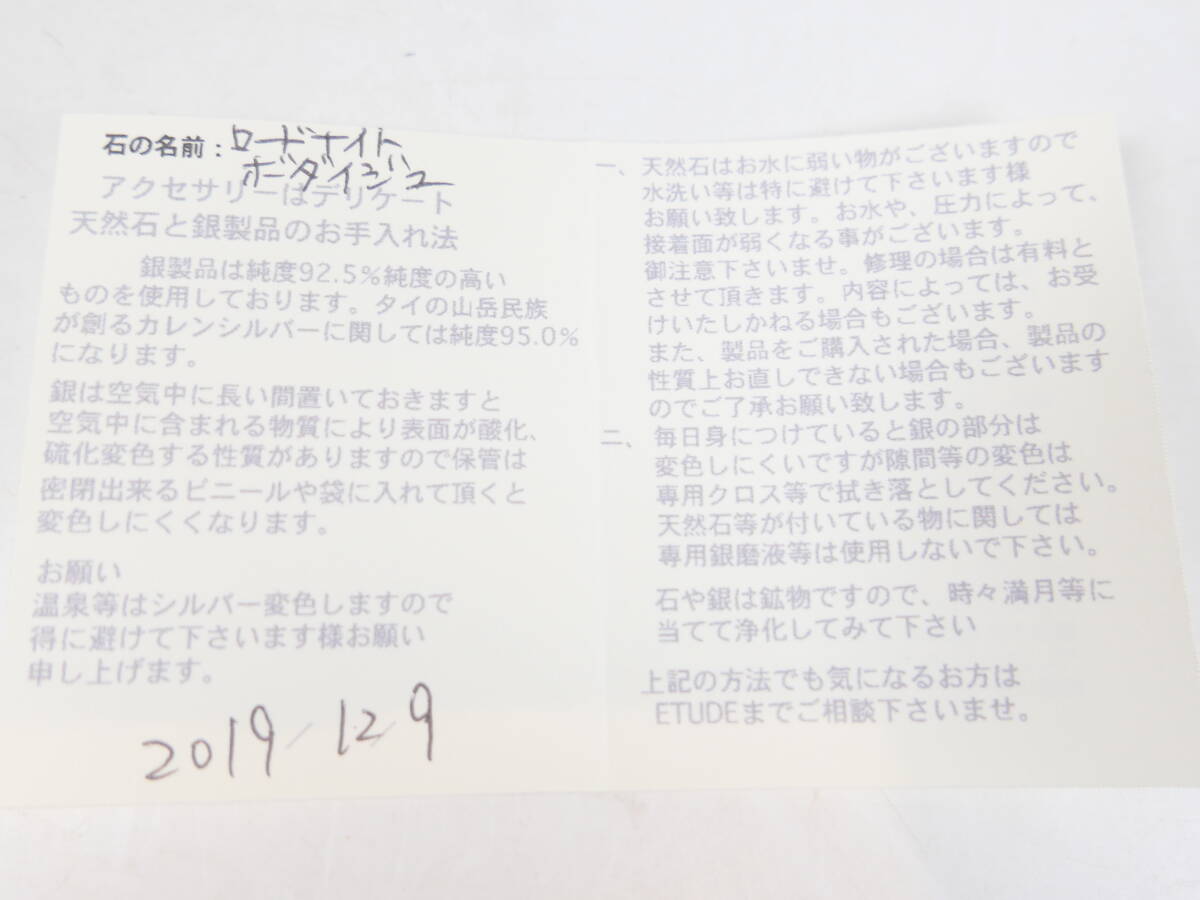 石の名前：ロードナイト
ボーダイジュ
アクセサリーはデリケート
天然石と銀製品のお手入れ法
銀製品は純度92.5%純度の高い
ものを使用しております。タイの山岳民族
が創るカレンシルバーに関しては純度95.0%
になります。
銀は空気中に長い間置いておきますと
空気中に含まれる物質により表面が酸化、
硫化変色する性質がありますので保管は
密閉出来るビニールや袋に入れて頂くと
変色しにくくなります。
お願い
温泉等はシルバー変色しますので
得に避けて下さいます様お願い
申し上げます。
2019/12/9
一、天然石はお水に弱い物がございますので
水洗い等は特に避けて下さいます様
お願い致します。お水や、圧力によって、
接着面が弱くなる事がございます。
御注意下さいませ。修理の場合は有料と
させて頂きます。内容によっては、お受
けいたしかねる場合もございます。
また、製品をご購入された場合、製品の
性質上お直しできない場合もございます
のでご了承お願い致します。
二、毎日身につけていると銀の部分は
変色しにくいですが隙間等の変色は
専用クロス等で拭き落としてください。
天然石等が付いている物に関しては
専用銀磨液等は使用しないで下さい。
石や銀は鉱物ですので、時々満月等に
当てて浄化してみて下さい
上記の方法でも気になるお方は
ETUDEまでご相談下さいませ。